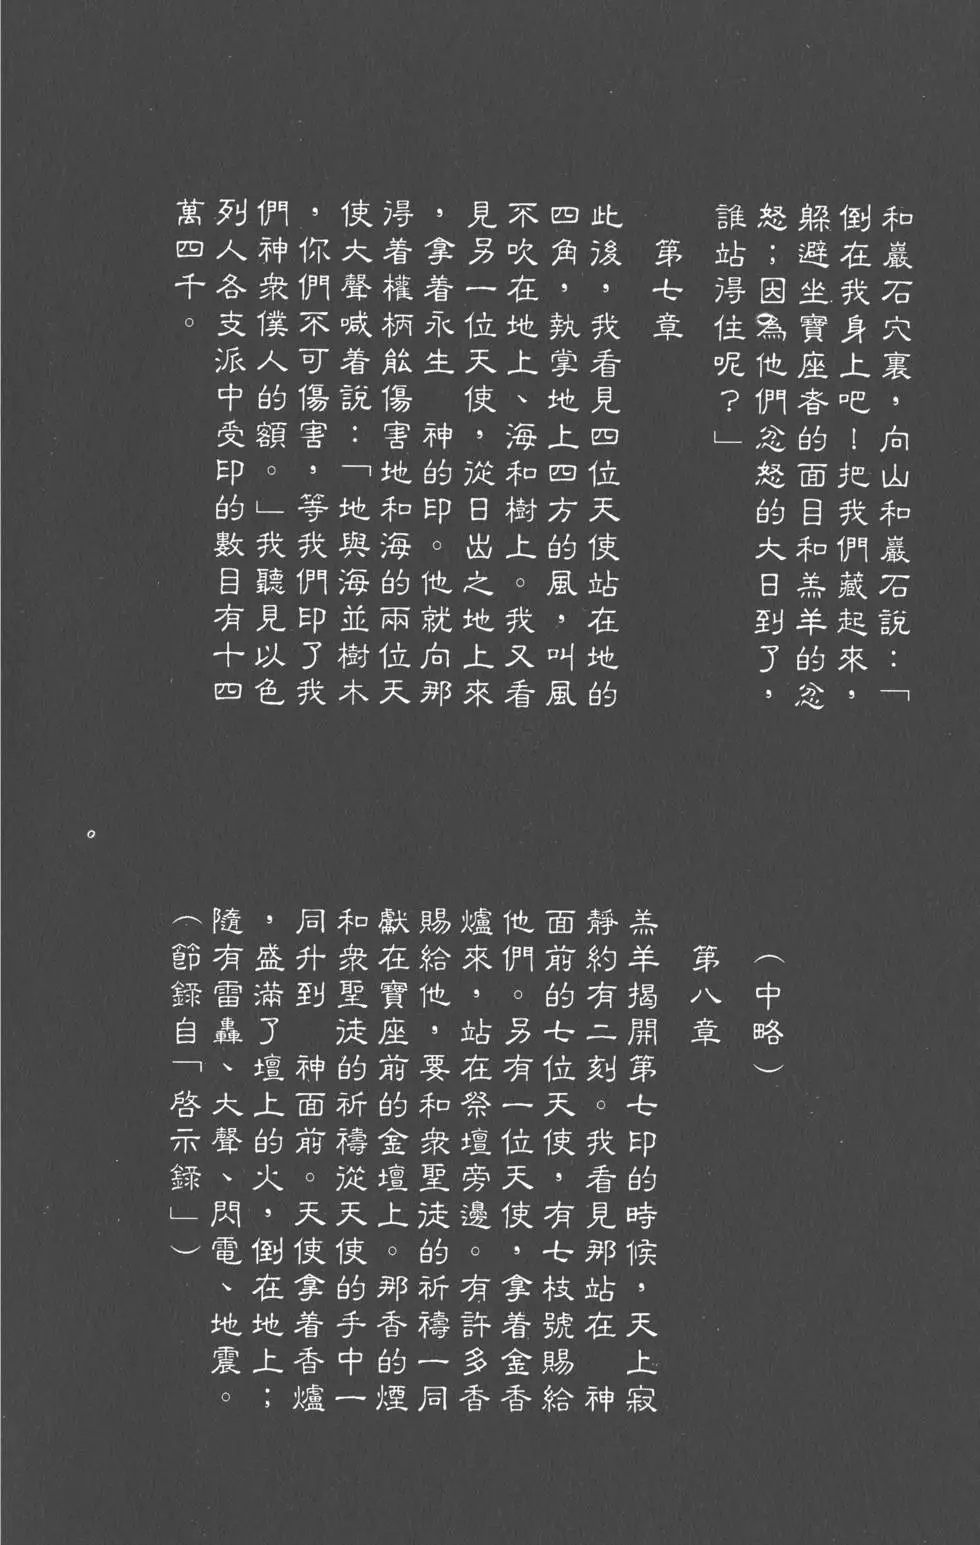 和巖石穴裏，向山和巖石說：「
倒在我身上吧！把我們藏起來，
躲避坐寶座者的面目和羔羊的忿
怒；因為他們忿怒的大日到了，
誰站得住呢？」
第七章
此後，我看見四位天使站在地的
四角，執掌地上四方的風，叫風
不吹在地上、海和樹上。我又看
見另一位天使，從日出之地上來
，拿着永生　神的印。他就向那
得着權柄能傷害地和海的兩位天
使大聲喊着說：「地與海並樹木
，你們不可傷害，等我們印了我
們神衆僕人的額。」我聽見以色
列人各支派中受印的數目有十四
萬四千。
（中略）
第八章
羔羊揭開第七印的時候，天上寂
靜約有二刻。我看見那站在　神
面前的七位天使，有七枝號賜給
他們。另有一位天使，拿着金香
爐來，站在祭壇旁邊。有許多香
賜給他，要和衆聖徒的祈禱一同
獻在寶座前的金壇上。那香的煙
和衆聖徒的祈禱從天使的手中一
同升到　神面前。天使拿着香爐
，盛滿了壇上的火，倒在地上；
隨有雷轟、大聲、閃電、地震。
（節錄自「啓示錄」）
。